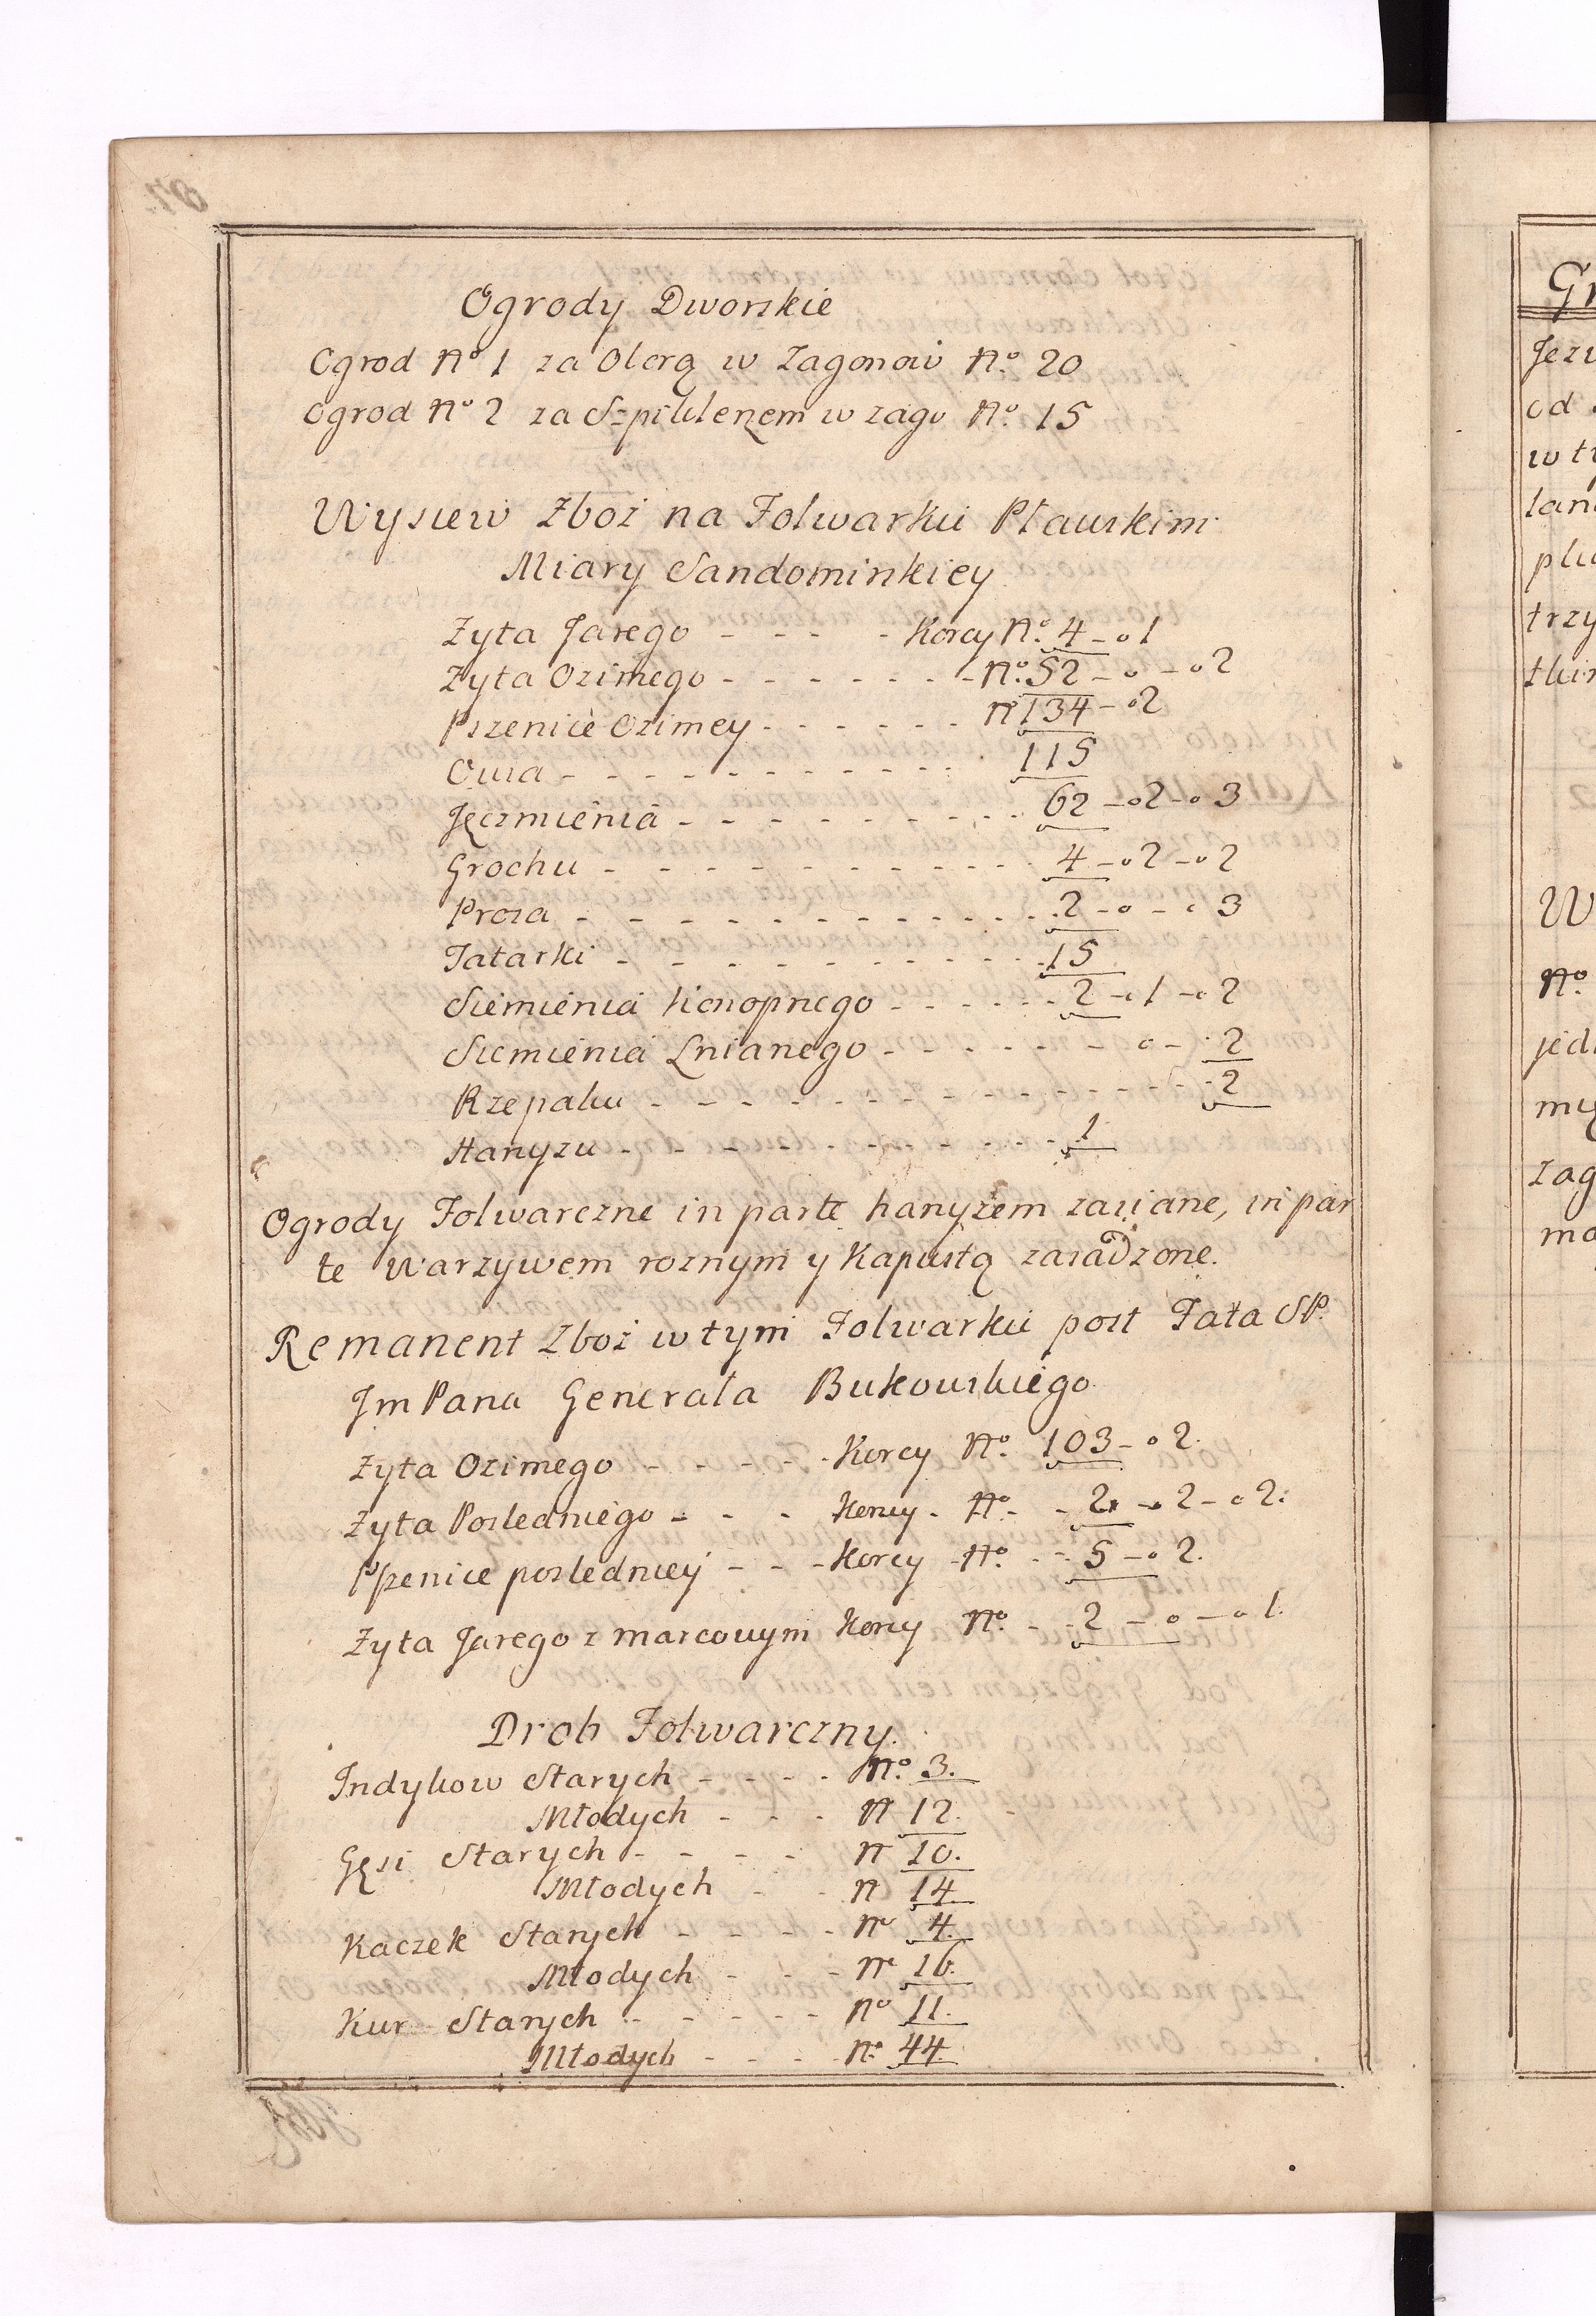 Ogrody Dworskie
Ogrod No 1 za Oborą w Zagonow No. 20
Ogrod No 2 za Szpiklerzem w zago No. 15
Wysiew Zboż na Folwarku Pławskim
Miary Sandomirskiey
Zyta Jarego - - - - Korcy No. 4 - o 1
Zyta Ozimego - - - - - - - No. 52 - o - o 2
Pszenice Ozimey - - - - - - N 134 - o 2
Owsa - - - - - - - - - - - 115
Jęczmienia - - - - - - - - - 62 - o 2 - o 3
Grochu - - - - - - - - - - - 4 - o 2 - o 2
Prosa - - - - - - - - - - - - 2 - o - o 3
Tatarki - - - - - - - - - - - 15
Siemienia Konopnego - - - - - - 2 - o 1 - o 2
Siemienia Lnianego - - - - - - - o - 2
Rzepaku - - - - - - - - - - - - - 2
Hanyzu - - - - - - - - - - - 1
Ogrody Folwarczne in parte hanyżem zasiane, in par
te Warzywem roznym y Kapustą zasadzone.
Remanent Zboż w tym Folwarku post Fata SP.
Jm Pana Generała Bukowskiego
Zyta Ozimego - - - - - Korcy No. 103 - o 2.
Zyta Posledniego - - - Korcy - No - - 2 - o 2 - o 2.
Pszenice posledniey - - - Korcy - No. - - 5 - o 2.
Zyta Jarego z marcowym Korcy No. - - 2 - o - o 1.
Drob Folwarczny.
Indykow Starych - - - - No. 3.
Młodych - - - N 12.
Gęsi Starych - - - - N 10.
Młodych - - N 14.
Kaczek Starych - - - - - Nr 4.
Młodych - - - Nr 16.
Kur Starych - - - - - No 11.
Młodych - - - - No. 44.